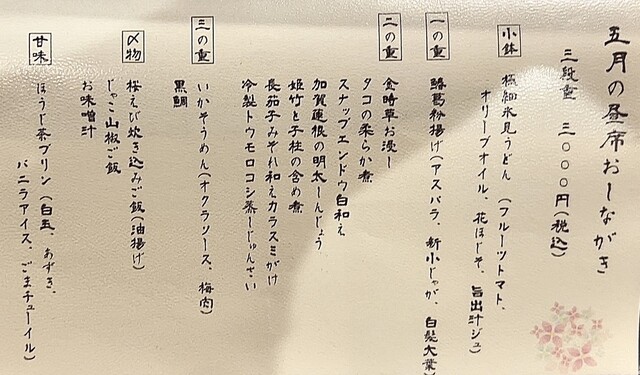 五月の昼席おしながき
三段重 三〇〇〇円(税込)
小鉢
極細氷見うどん (フルーツトマト、
オリーブオイル、花ほじそ、旨出汁ジュ)
一の重
鰆葛粉揚げ(アスパラ、新小じゃが、白髪大葉
二の重
金時草お浸し
タコの柔らか煮
スナップエンドウ白和え
加賀蓮根の明太しんじょう
姫竹と子柱の含め煮
長茄子みぞれ和えカラスミがけ
冷製トウモロコシ蒸しじゅんさい
三の重
いかそうめん(オクラソース、梅肉)
黒鯛
〆物
桜えび炊き込みご飯(油揚げ)
じゃこ山椒ご飯
お味噌汁
甘味
ほうじ茶プリン(白玉、あずき、
バニラアイス、ごまチューイル)